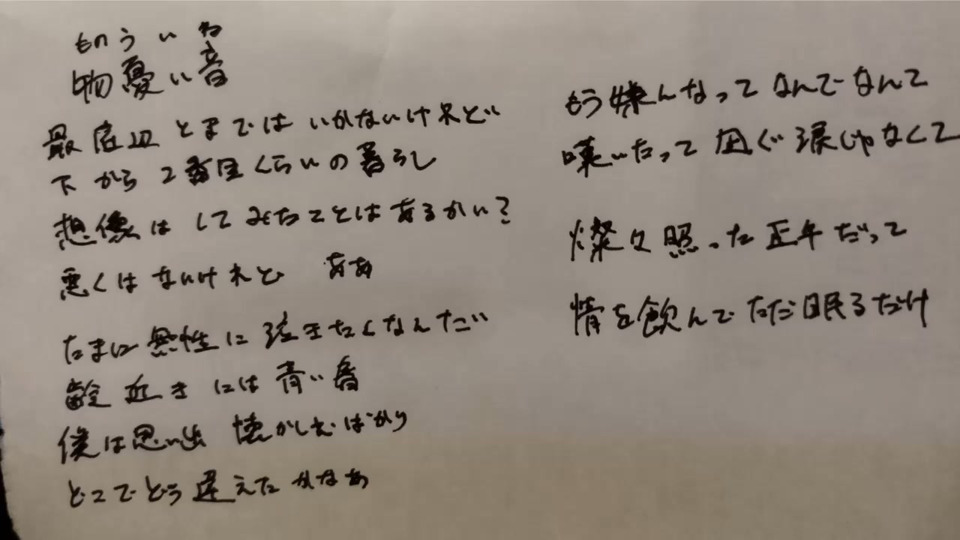 ものういね
物憂い音
最底辺とまではいかないけれど
下から2番目くらいの暮らし
想像はしてみたことはあるかい?
悪くはないけれど ああ
たまに無性に泣きたくなんだい
齢近きには青い春
僕は思い出 懐かしむばかり
どこでどう違えたかなあ
もう嫌んなってなんでなんて
嘆いたって 凪ぐ涙じゃなくて
燦々照った正午だって
情を飲んでただ眠るだけ